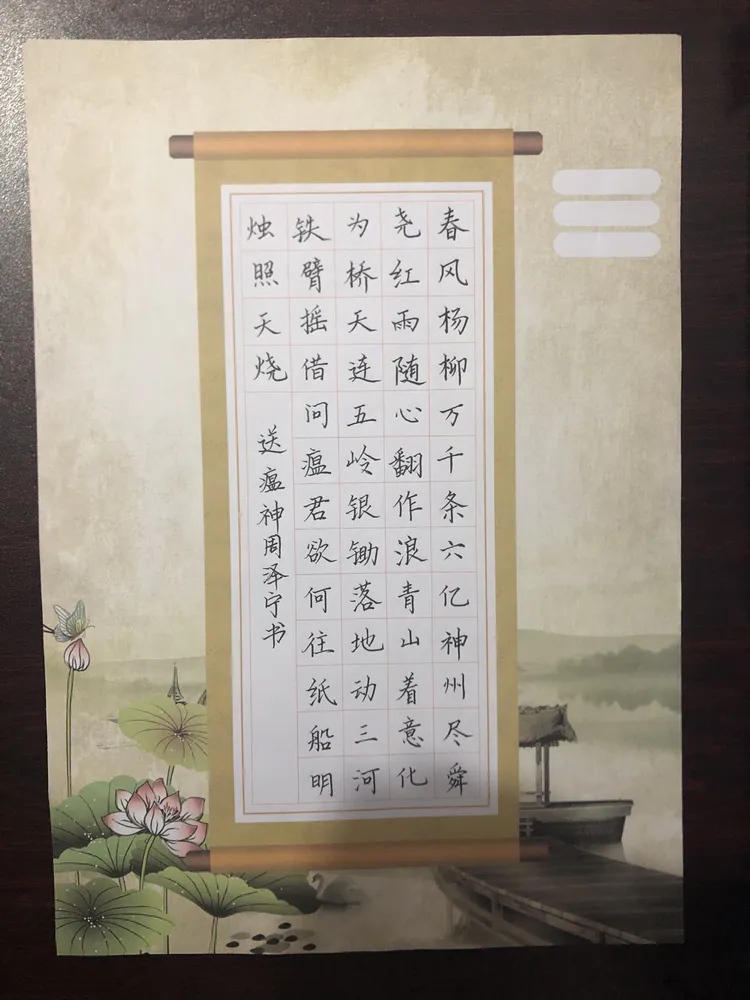 春风杨柳万千条六亿神州尽舜
尧红雨随心翻作浪青山着意化
为桥天连五岭银锄落地动三河
铁臂摇借问瘟君欲何往纸船明
烛照天烧
送瘟神周泽宁书